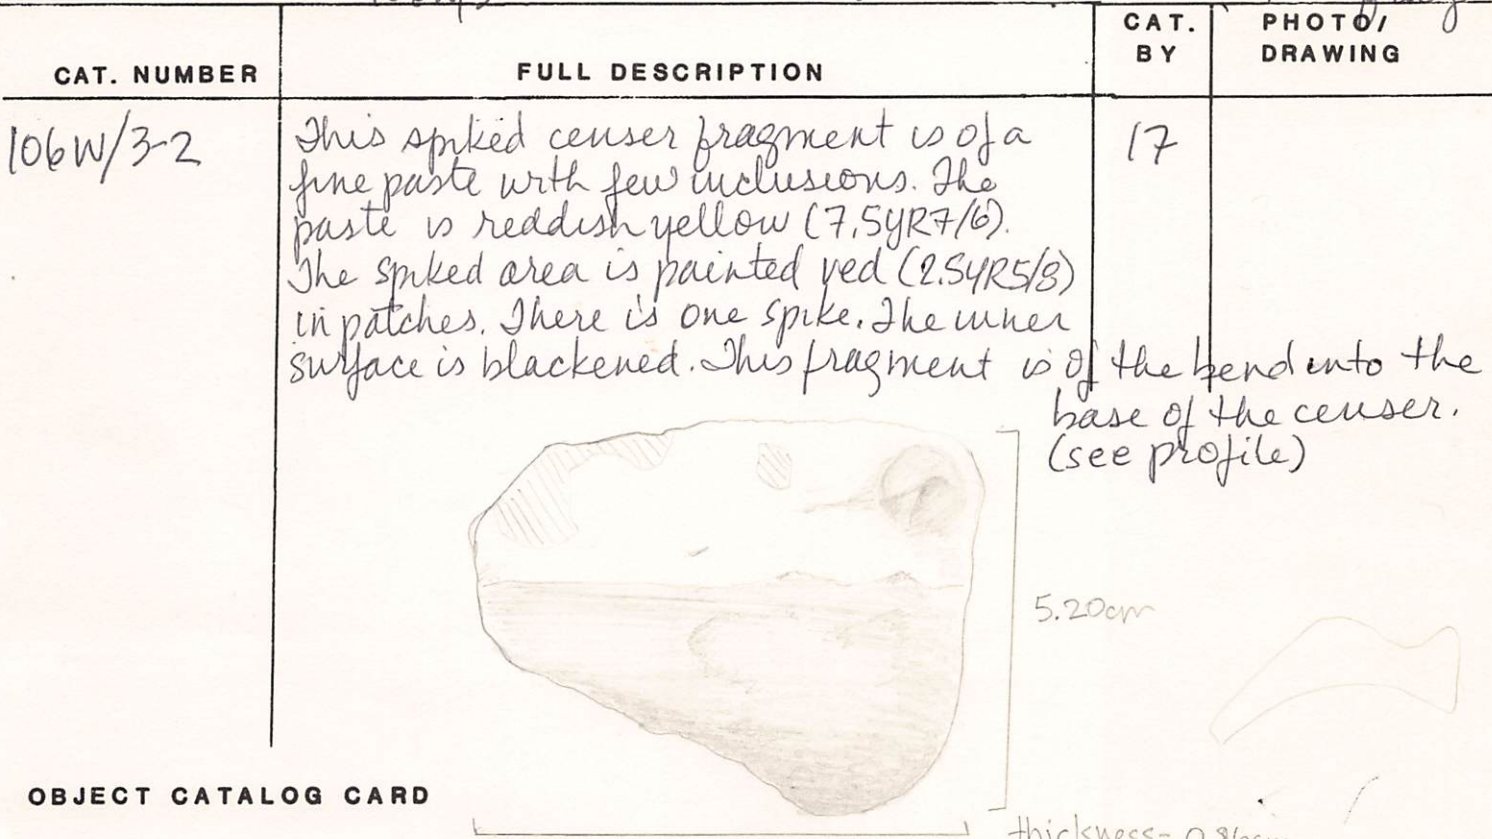 CAT. NUMBER
FULL DESCRIPTION
CAT. BY
PHOTO/ DRAWING
106W/3-2
This spiked censer fragment is of a
fine paste with few inclusions. The
paste is reddish yellow (7.5YR7/6).
The spiked area is painted red (2.5YR5/8)
in patches. There is one spike. The inner
surface is blackened. This fragment is of the bend into the
base of the censer.
(see profile)
17
5.20cm
OBJECT CATALOG CARD
thickness-